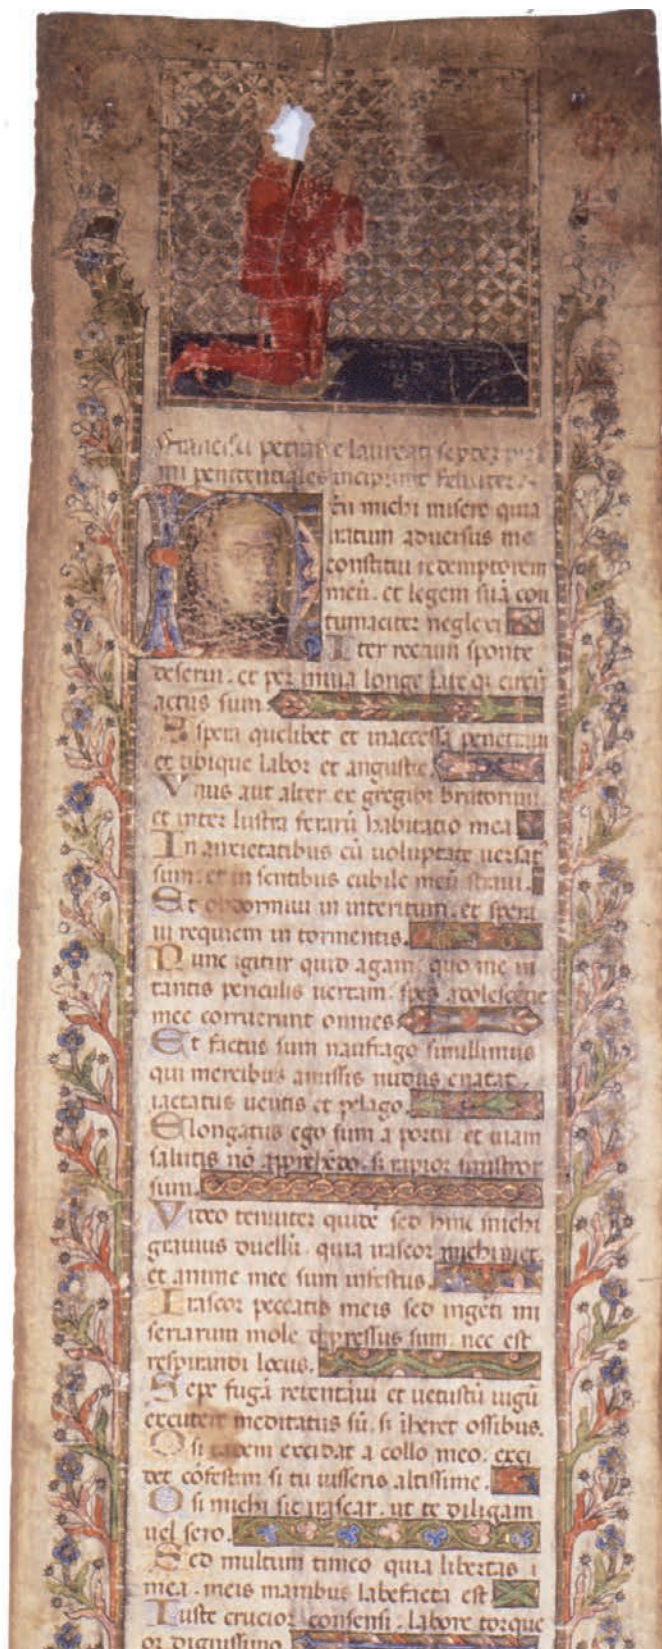 Francisci petrarce laureati septem psal
mi penitentiales incipiunt feliciter
Eu michi misero quia
iratum aduersus me
constitui redemptorem
meū. et legem suā con
tumaciter neglexi
Iter rectum sponte
deserui. et per inuia longe late qȝ circū
actus sum.
Aspera quelibet et inaccessa penetraui
et ubique labor et angustie.
Vnus aut alter ex gregibȝ brutorum
et inter lustra ferarū habitatio mea
In anxietatibus cū uoluptate uersat
sum. et in sentibus cubile meū straui.
Et obdormiui in interitum. et spera
ui requiem in tormentis.
Nunc igitur quid agam. quo me in
tantis periculis uertam. spes adolescētie
mee corruerunt omnes
Et factus sum naufrago simillimus
qui mercibus amissis nudus enatat.
iactatus uentis et pelago.
Elongatus ego sum a portu et uiam
salutis nō apprehēdo. si rapior sinistror
sum.
Video tenuiter quidē sed hinc michi
grauius duellū. quia irascor michi met
et anime mee sum infestus.
Irascor peccatis meis sed ingēti mi
seriarum mole depressus sum. nec est
respirandi locus.
Sepe fugā retentaui et uetustū iugū
excutere meditatus sū. si īheret ossibus.
O si tandem excidat a collo meo. exci
det cōfestim si tu iusseris altissime.
O si michi sic irascar. ut te diligam
uel sero.
Sed multum timeo quia libertas ī
mea. meis manibus labefacta est
Iuste crucior. consensi. labore torque
or dignissimo